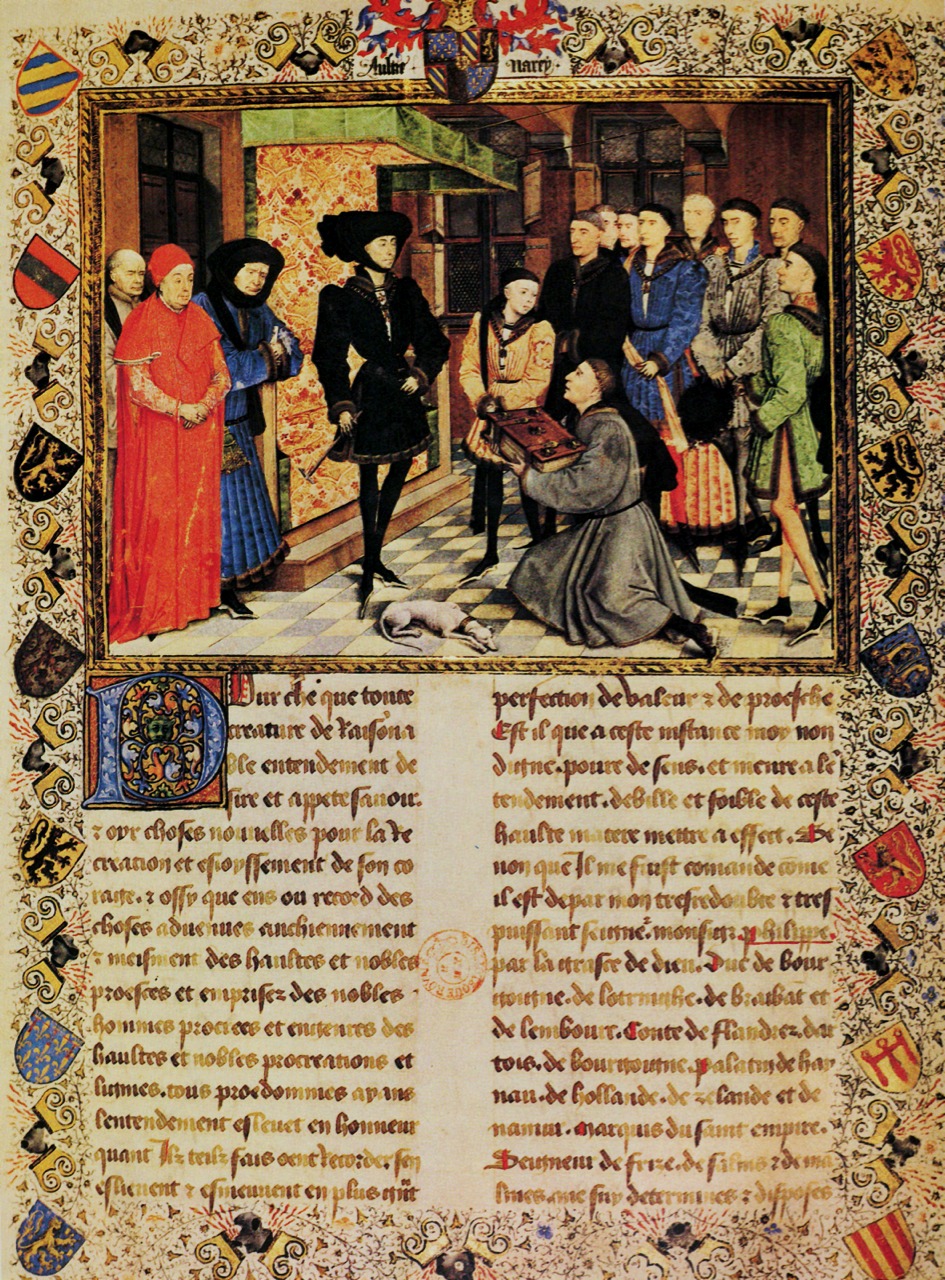 Aultre Narey
Pour che que toute
creature de Raisona
ble entendement de
sire et appete sauoir.
⁊ oyr choses nouuelles pour la Re
creation et esioyssement de son co
rage. ⁊ ossy que ens ou record des
choses aduenues anchiennement
⁊ meisment des haultes et nobles
proesces et emprises des nobles
hommes procrees et engenres des
haultes et nobles procreations et
lignies. tous proedommes ayans
lentendement esleuet en honneur
quant Ilz telz fais oent Recorder sen
eslieuent ⁊ esmeuuent en plus grāt
perfection de valeur ⁊ de proesche
Est il que a ceste instance moy non
digne. poure de sens. et
tendement. debille et foible de ceste
haulte matere mettre a effect. Se
non que Il me fust comande cōme
il est de par mon tresredoubte ⁊ tres
puissant seigneʳ. monsigʳ phelippe.
par la grasce de dieu. Duc de bour
gongne. de lotringhe. de brabāt et
de lembourc. Conte de flandrez. dar
tois. de bourgongne. palatin de hay
nau. de hollande. de zelande et de
namur. Marquis du saint empire.
Seigneur de frize. de salins ⁊ de ma
lines. me suy determines ⁊ disposes